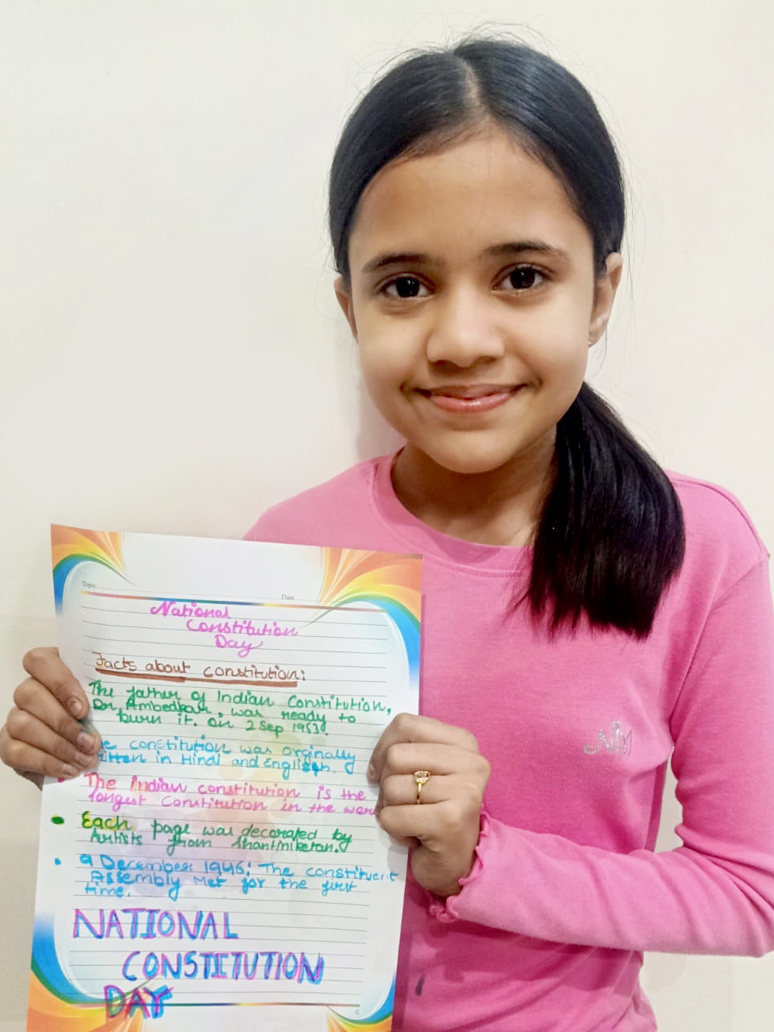 Topic
Date
National
Constitution
Day
Facts about constitution:
The father of Indian Constitution,
Dr, Ambedkar, was ready to
burn it. on 2 Sep 1953.
constitution was orginally
written in Hindi and English.
• The Indian constitution is the
longest Constitution in the
• Each page was decorated by
Artists from Shantiniketan.
• 9 December 1946: The constituent
Assembly Met for the first
time.
NATIONAL
CONSTITUTION
DAY
NM